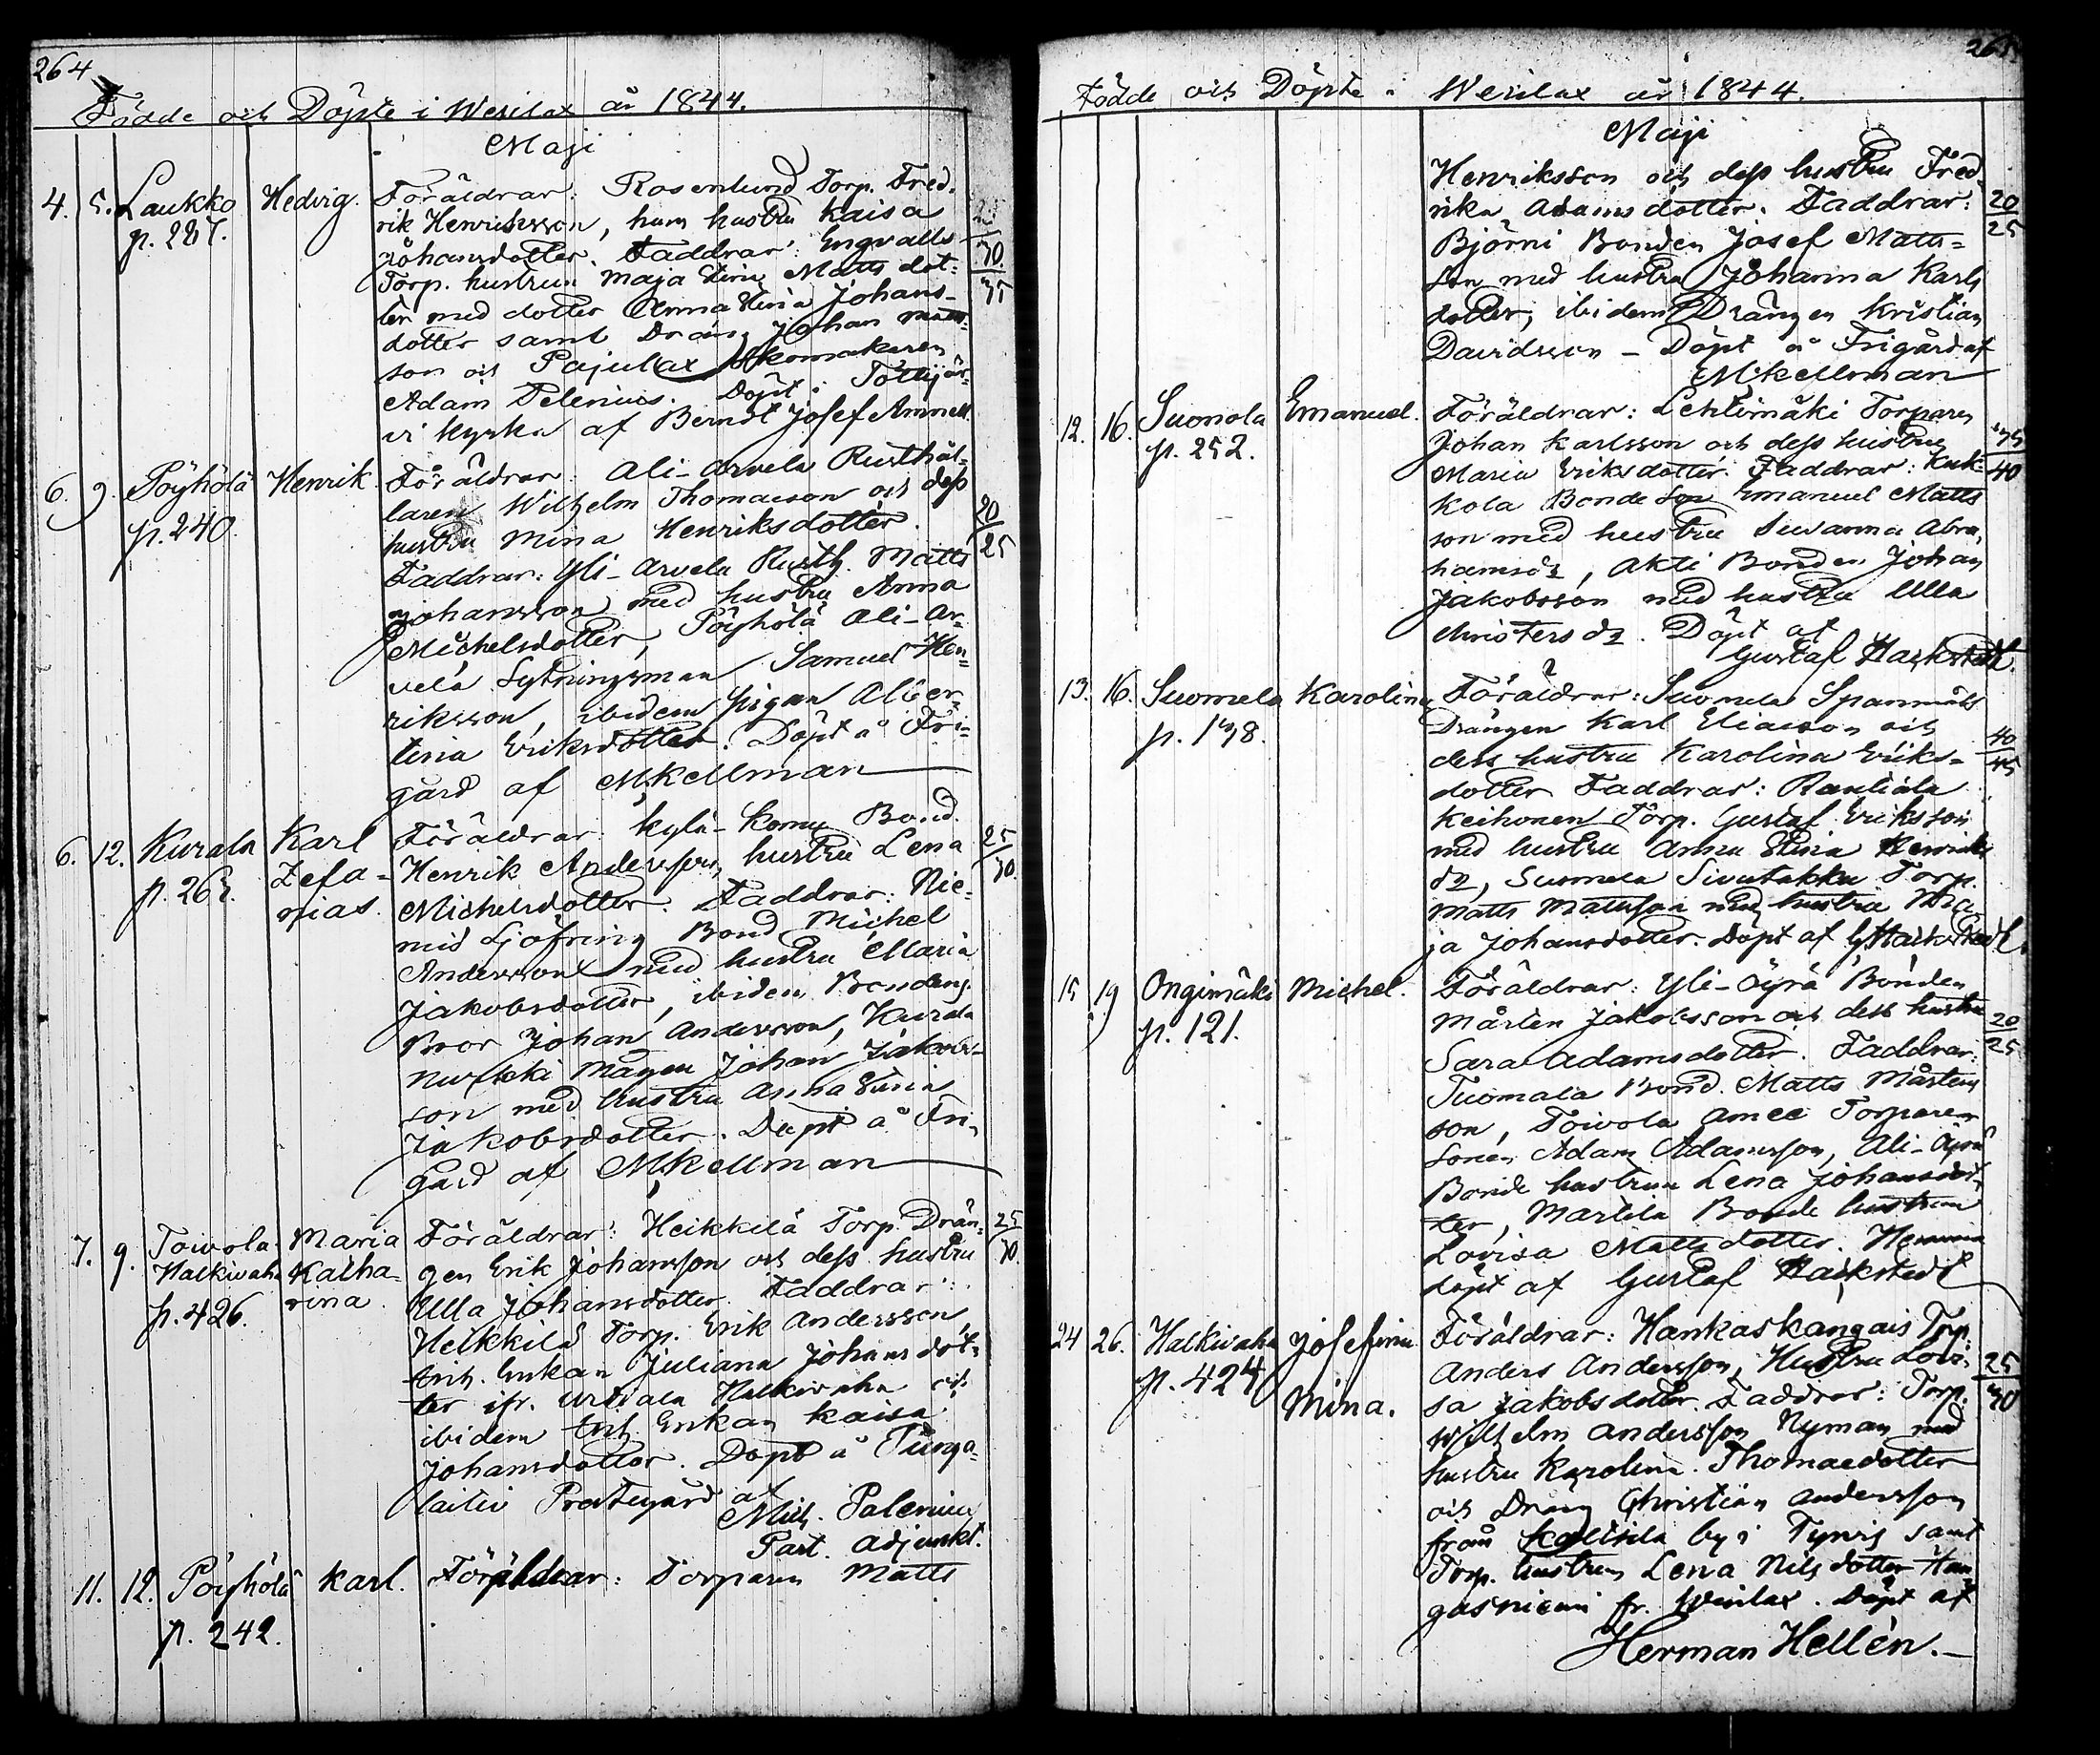 264
Födde och Döpte i Wesilax år 1844.
Maji
4. 5. Laukko Hedvig. Föräldrar: Rosenlund Torp. Fred-
p. 227. rik Henriksson, hans hustru Kaisa
Johansdotter. Faddrar: Engvalls 30
Torp. hustrun Maja Stina Matts dot- 35
ter med dotter Anna Stina Johans-
dotter samt Dräng Johan Matts-
son och Pajulax Skomakaren
Adam Selenius. Döpt i Tottijär-
vi kyrka af Berndt Josef Ammell.
6. 9. Pöyhölä Henrik. Föräldrar: Ali-Arvela Rusthål-
p. 240. laren Wilhelm Thomasson och dess
hustru Mina Henriksdotter. 20
Faddrar: Yli-Arvela Rusth. Matts 25
Johansson med hustru Anna
Michelsdotter, Pöyhölä Ali-Ar-
vela Sytningsman Samuel Hen-
riksson, ibidem pigan Alber-
tina Eriksdotter. Döpt å Fri-
gård af M Kellman
6. 12. Kurala Karl Föräldrar: Kylä-Komu Bond. 25
p. 262. Zefa- Henrik Andersson, hustru Lena 30.
nias. Michelsdotter. Faddrar: Nie-
mis Ljöfring Bond Michel
Andersson med hustru Maria
Jakobsdotter, ibidem Bondens
Bror Johan Andersson, Kurala
Nurkki Mågen Johan Jakobs-
son med hustru Anna Stina
Jakobsdotter. Döpt å Fri-
gård af M Kellman
7. 9. Toivola- Maria Föräldrar: Heikkilä Torp. Drän- 25
Halkivaha Katha- gen Erik Johansson och dess hustru 30.
p. 426. rina. Ulla Johansdotter. Faddrar:
Heikkilä Torp. Erik Andersson,
Inh. Enkan Juliana Johansdot-
ter ifr. Urdiala Halkivaha och
ibidem Inh. Enkan Kaisa
Johansdotter. Döpt å Tunga-
laitio Prestegård af
Mich. Palenius
Past. Adjunkt.
11. 12. Pöyhölä Karl. Föräldrar: Torparen Matts
p. 242.
265
Födde och Döpte i Wesilax år 1844.
Maji
Henriksson och dess hustru Fred-
rika Adamsdotter. Faddrar: 20
Björni Bonden Josef Matts- 25
son med hustru Johanna Karls
dotter, ibidem Drängen Kristian
Davidsson – Döpt å Frigård af
M Kellman
12. 16. Suonola Emanuel. Föräldrar: Lehtimäki Torparen
p. 252. Johan Karlsson och dess hustru 35
Maria Eriksdotter. Faddrar: Kuk- 40
kola Bonde Son Emanuel Matts
son med hustru Susanna Abra-
hamsdr, Akti Bonden Johan
Jakobsson med hustru Ulla
Christersdr. Döpt af
Gustaf Hackstedt.
13. 16. Suomela Karolina Föräldrar: Suomela Spanmåls
p. 178. Drängen Karl Eliasson och
dess hustru Karolina Eriks- 40
dotter Faddrar: Rautiala 45
Keihonen Torp. Gustaf Eriksson
med hustru Anna Stina Henriks
dr, Suomela Sivutakka Torp.
Matts Mattsson med hustru Ma
ja Johansdotter. Döpt af G Hackstedt.
15 19 Ongimäki Michel. Föräldrar: Yli-Äyrä Bonden
p. 121. Mårten Jakobsson och dess hustru 20
Sara Adamsdotter. Faddrar: 25
Tuomala Bond. Matts Mårtens
son, Toivola Torparen
Sonen Adam Adamsson, Ali-Äyrä
Bonde hustrun Lena Johansdot-
ter, Martila Bonde hustrun
Lovisa Mattsdotter. Hemma
döpt af Gustaf Hackstedt
24 26. Halkivaha Josefina Föräldrar: Hankaskangais Torp.
p. 424. Mina. Anders Andersson, Hustru Lovi- 25
sa Jakobsdotter. Faddrar: Torp. 30
Wilhelm Andersson Nyman med
hustru Karolina Thomaedotter
och Dräng Christian Andersson
från by i Tyrvis samt
Torp. hustrun Lena Nilsdotter Han
gasniemi fr. Wesilax. Döpt af
Herman Hellén.